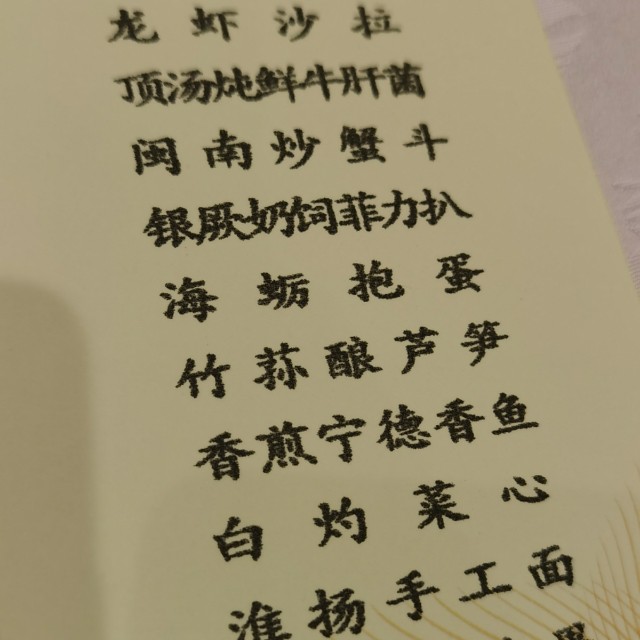 龙虾沙拉
顶汤炖鲜牛肝菌
闽南炒蟹斗
银厥奶饲菲力扒
海蛎抱蛋
竹荪酿芦笋
香煎宁德香鱼
白灼菜心
淮扬手工面